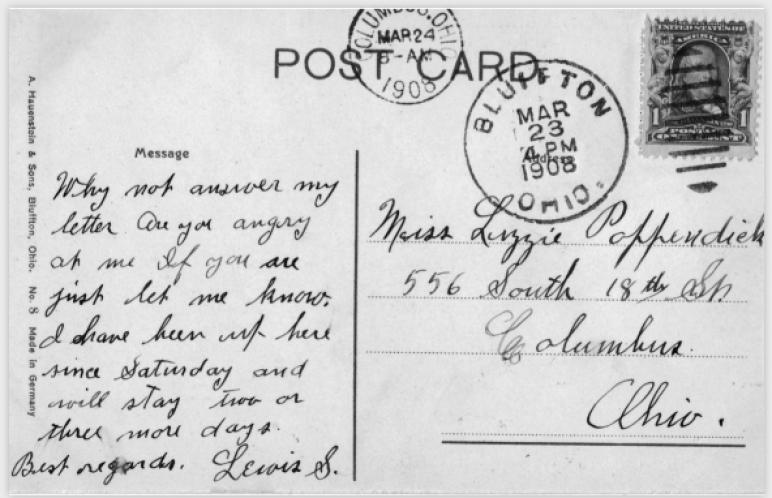 COLUMBUS, OHIO
MAR 24
8-AM
1908
POST CARD
BLUFFTON
MAR
23
4 PM
1908
OHIO.
Address
UNITED STATES OF
AMERICA
1 1
POSTAGE
ONE CENT
A. Hauenstein & Sons, Bluffton, Ohio. No. 8 Made in Germany
Message
Why not answer my
letter Are you angry
at me If you are
just let me know.
I have been up here
since Saturday and
will stay two or
three more days.
Best regards. Lewis S.
Miss Lizzie Poppendick
556 South 18th St.
Columbus.
Ohio.